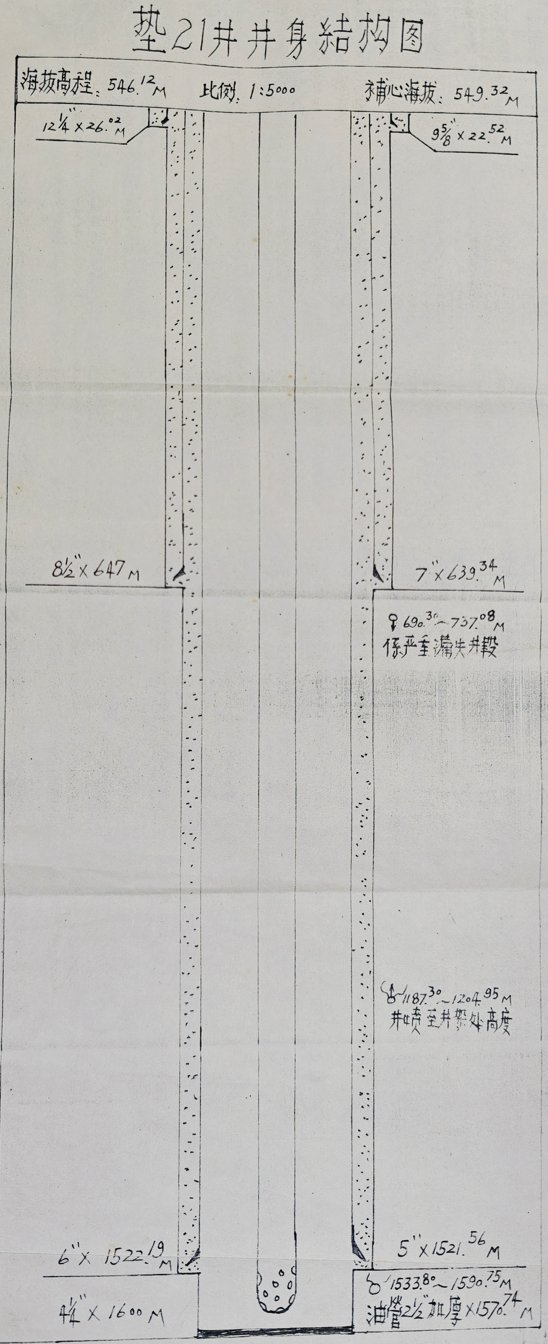 垫21井井身结构图
海拔高程: 546.12M 比例: 1:5000 補心海拔: 549.32M
12¼" × 26.02M
9⅝" × 22.52M
8½" × 647M
7" × 639.34M
690.30~737.08M
係严重漏失井段
1187.30~1204.95M
井喷至井架处高度
6" × 1522.19M
5" × 1521.56M
1533.80~1590.75M
4¼" × 1600M
油管2½"加厚×1570.74M